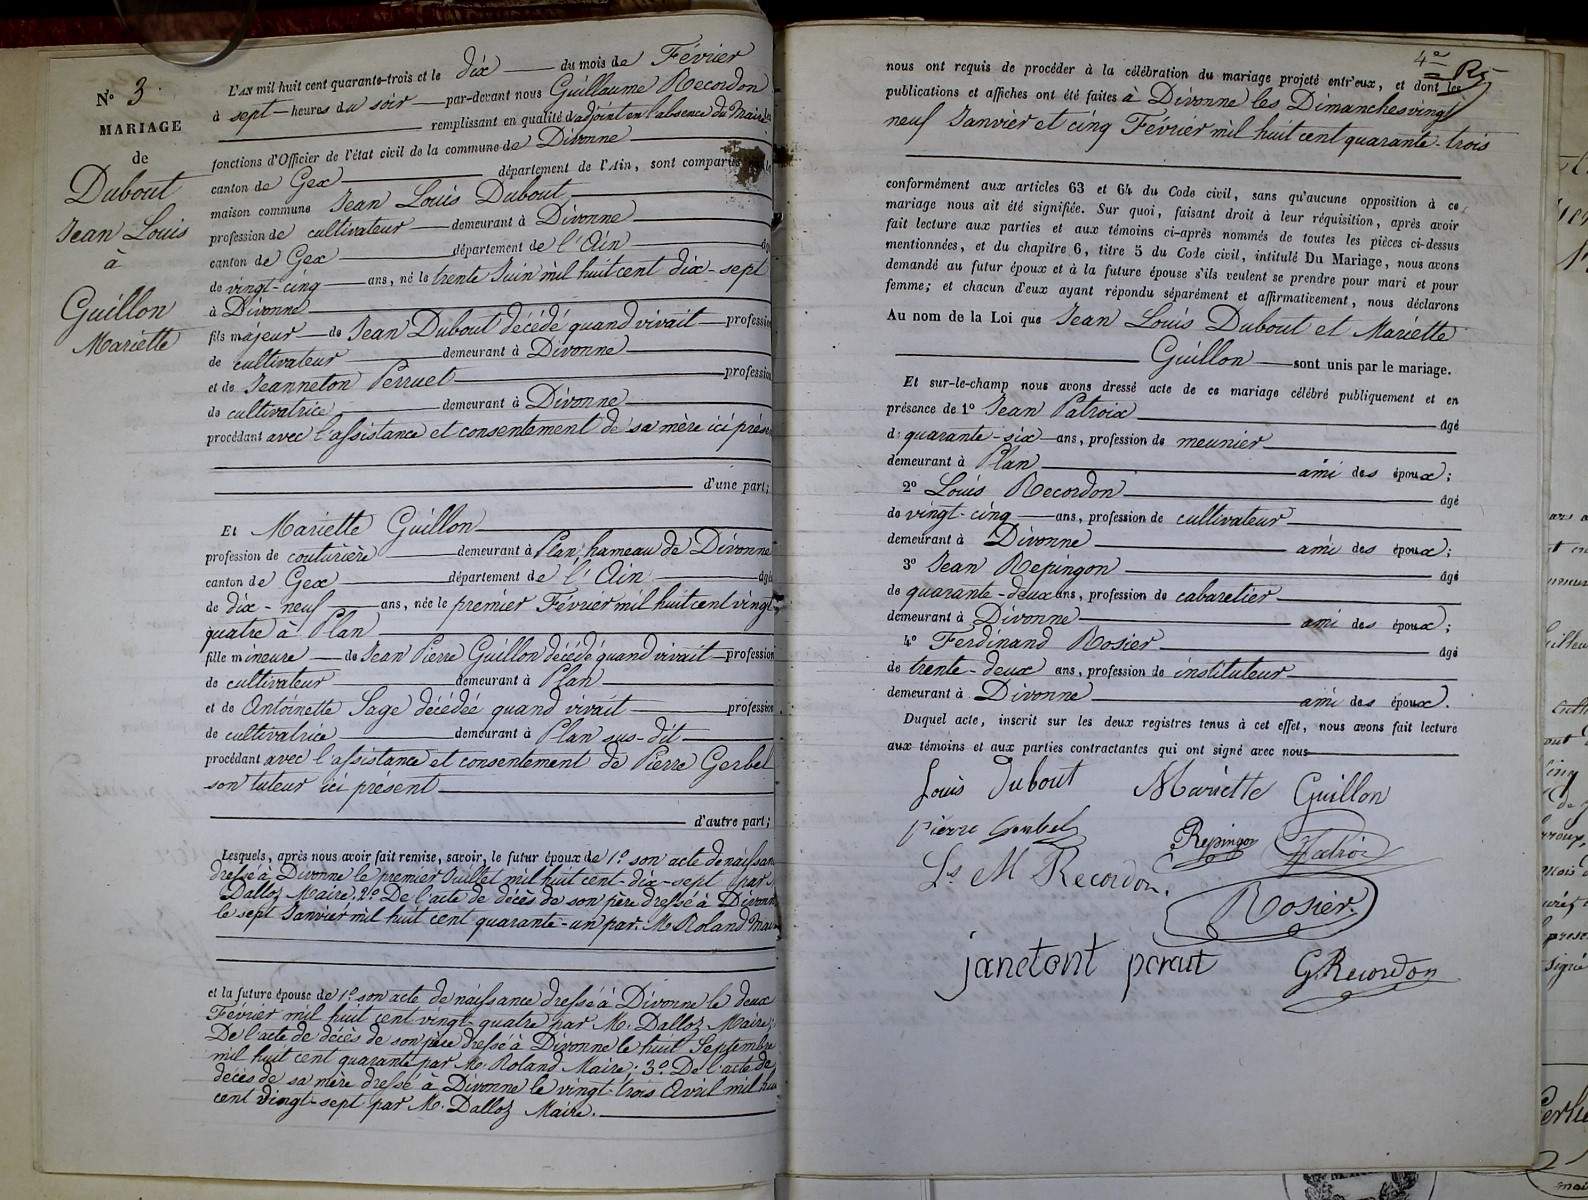 N.º 3.
MARIAGE
de
Dubout
Jean Louis
à
Guillon
Mariette
L'AN mil huit cent quarante-trois et le dix du mois de Février
à sept heures du soir par-devant nous Guillaume Recordon
remplissant en qualité d'adjoint en l'absence du Maire les
fonctions d'Officier de l'état civil de la commune de Divonne
canton de Gex département de l'Ain, sont comparus
maison commune Jean Louis Dubout
profession de cultivateur demeurant à Divonne
canton de Gex département de l'Ain âgé
de vingt-cinq ans, né le trente Juin mil huit cent dix-sept
à Divonne
fils majeur de Jean Dubout décédé quand vivait profession
de cultivateur demeurant à Divonne
et de Jeanneton Perruet profession
de cultivatrice demeurant à Divonne
procédant avec l'assistance et consentement de sa mère ici présen
d'une part;
Et Mariette Guillon
profession de couturière demeurant à Plan, hameau de Divonne
canton de Gex département de l'Ain âgé
de dix-neuf ans, née le premier Février mil huit cent vingt
quatre à Plan
fille mineure de Jean Pierre Guillon décédé quand vivait profession
de cultivateur demeurant à Plan
et de Antoinette Sage décédée quand vivait profession
de cultivatrice demeurant à Plan sus-dit
procédant avec l'assistance et consentement de Pierre Gerbel
son tuteur ici présent
d'autre part;
Lesquels, après nous avoir fait remise, savoir, le futur époux de 1.º son acte de naissan
dressé à Divonne le premier Juillet mil huit cent-dix-sept par
Dalloz Maire; 2.º De l'acte de décès de son père dressé à Divonne
le sept Janvier mil huit cent quarante-un par M. Roland Mai
et la future épouse de 1.º son acte de naissance dressé à Divonne le deux
Février mil huit cent vingt-quatre par M. Dalloz Maire;
De l'acte de décès de son père dressé à Divonne le huit Septembre
mil huit cent quarante par M. Roland Maire; 3.º De l'acte de
décès de sa mère dressé à Divonne le vingt-trois Avril mil hu
cent vingt-sept par M. Dalloz Maire.
4e
nous ont requis de procéder à la célébration du mariage projeté entr'eux, et dont les
publications et affiches ont été faites à Divonne les Dimanches vingt
neuf Janvier et cinq Février mil huit cent quarante-trois
conformément aux articles 63 et 64 du Code civil, sans qu'aucune opposition à ce
mariage nous ait été signifiée. Sur quoi, faisant droit à leur réquisition, après avoir
fait lecture aux parties et aux témoins ci-après nommés de toutes les pièces ci-dessus
mentionnées, et du chapitre 6, titre 5 du Code civil, intitulé Du Mariage, nous avons
demandé au futur époux et à la future épouse s'ils veulent se prendre pour mari et pour
femme; et chacun d'eux ayant répondu séparément et affirmativement, nous déclarons
Au nom de la Loi que Jean Louis Dubout et Mariette
Guillon sont unis par le mariage.
Et sur-le-champ nous avons dressé acte de ce mariage célébré publiquement et en
présence de 1º Jean Patroix âgé
de quarante-six ans, profession de meunier
demeurant à Plan ami des époux;
2º Louis Recordon âgé
de vingt-cinq ans, profession de cultivateur
demeurant à Divonne ami des époux;
3º Jean Repingon âgé
de quarante-deux ans, profession de cabaretier
demeurant à Divonne ami des époux;
4º Ferdinand Rosier âgé
de trente-deux ans, profession de instituteur
demeurant à Divonne ami des époux.
Duquel acte, inscrit sur les deux registres tenus à cet effet, nous avons fait lecture
aux témoins et aux parties contractantes qui ont signé avec nous
Louis Dubout Mariette Guillon
Pierre Gerbel Repingon Patroix
Ls M Recordon.
Rosier.
janetont peraut
G Recordon